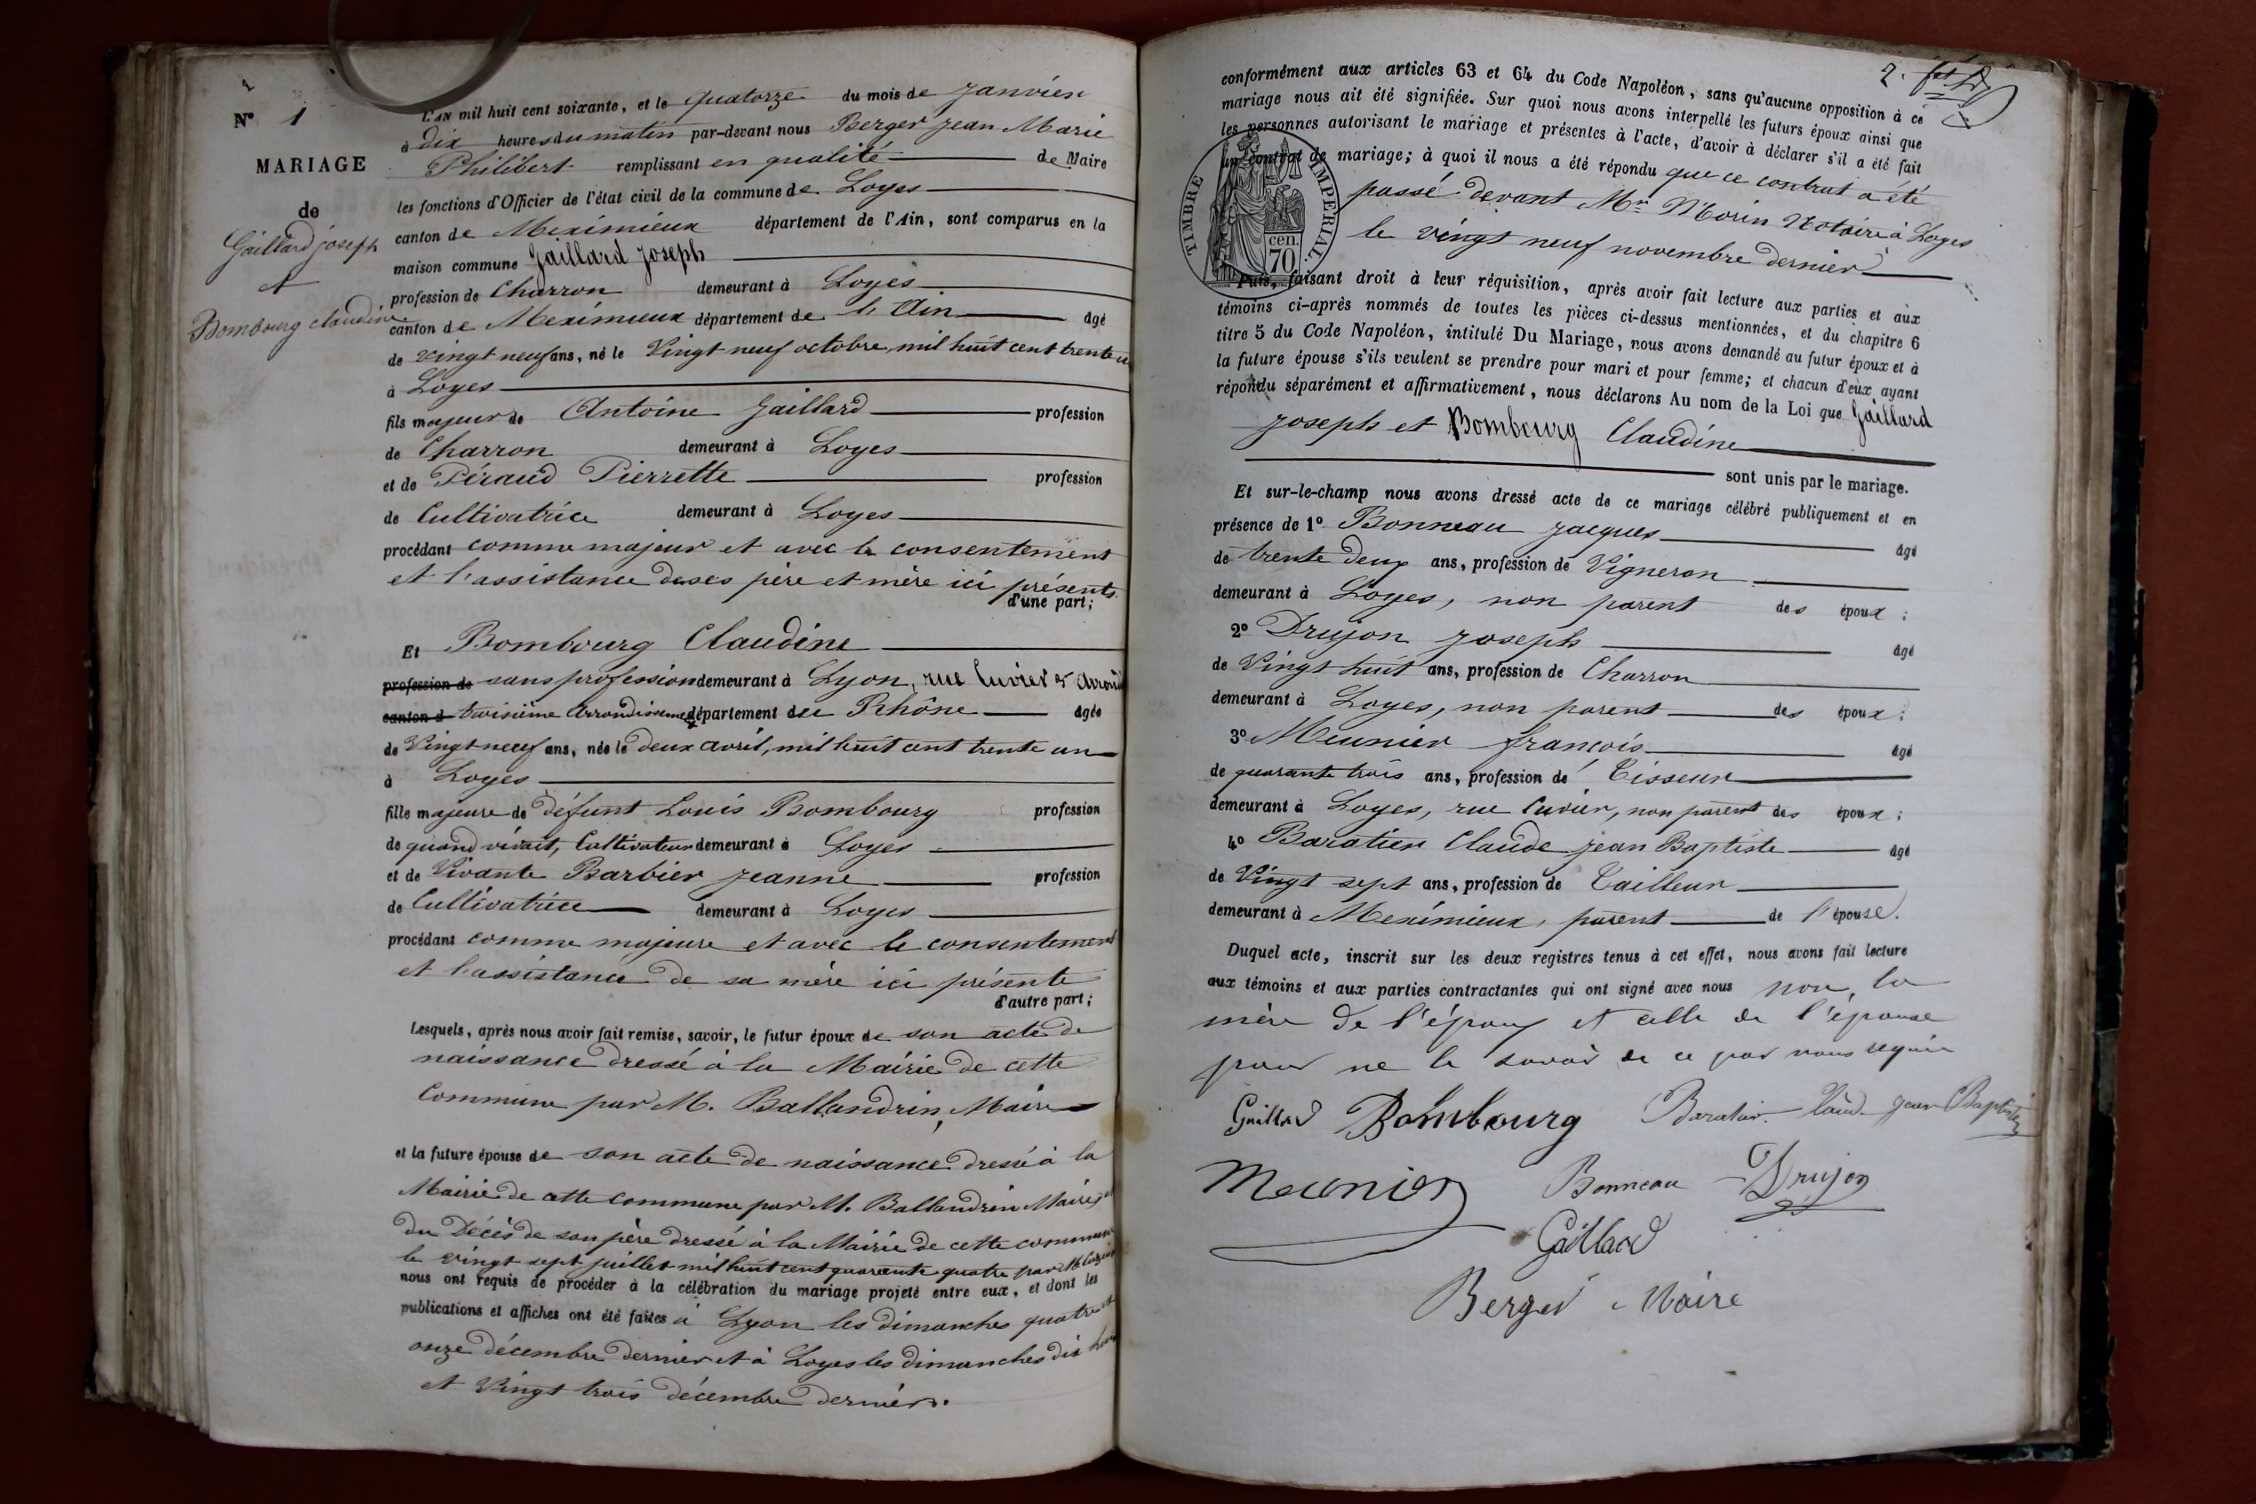 1
N° 1
MARIAGE
de
Gaillard joseph
et
Bombourg claudine
L'AN mil huit cent soixante, et le quatorze du mois de Janvier
à dix heures du matin par-devant nous Berger Jean Marie
Philibert remplissant en qualité de Maire
les fonctions d'Officier de l'état civil de la commune de Loyes
canton de Meximieux département de l'Ain, sont comparus en la
maison commune Gaillard Joseph
profession de Charron demeurant à Loyes
canton de Meximieux département de l'Ain âgé
de vingt neuf ans, né le Vingt neuf octobre, mil huit cent trente
à Loyes
fils majeur de Antoine Gaillard profession
de Charron demeurant à Loyes
et de Péraud Pierrette profession
de Cultivatrice demeurant à Loyes
procédant comme majeur et avec le consentement
et l'assistance de ses père et mère ici présents
d'une part;
Et Bombourg Claudine
profession de sans profession demeurant à Lyon, rue Cuvier 5
canton d troisième Arrondissement département du Rhône âgée
de Vingt neuf ans, née le deux avril, mil huit cent trente un
à Loyes
fille majeure de défunt Louis Bombourg profession
de quand vivait, Cultivateur demeurant à Loyes
et de Vivante Barbier Jeanne profession
de Cultivatrice demeurant à Loyes
procédant comme majeure et avec le consentement
et l'assistance de sa mère ici présente
d'autre part;
Lesquels, après nous avoir fait remise, savoir, le futur époux de son acte de
naissance dressé à la Mairie de cette
Commune par M. Ballandrin, Maire
et la future épouse de son acte de naissance dressé à la
Mairie de cette commune par M. Ballandrin Maire, et
du Décès de son père dressé à la Mairie de cette commune
le vingt sept juillet mil huit cent quarante quatre par M.
nous ont requis de procéder à la célébration du mariage projeté entre eux, et dont les
publications et affiches ont été faites à Lyon les dimanches quatre et
onze décembre dernier et à Loyes les dimanches dix
et Vingt trois décembre dernier.
2.
conformément aux articles 63 et 64 du Code Napoléon, sans qu'aucune opposition à ce
mariage nous ait été signifiée. Sur quoi nous avons interpellé les futurs époux ainsi que
les personnes autorisant le mariage et présentes à l'acte, d'avoir à déclarer s'il a été fait
un contrat de mariage; à quoi il nous a été répondu que ce contrat a été
passé devant Mre Morin Notaire à Loyes
le vingt neuf novembre dernier
TIMBRE IMPÉRIAL.
70 cen.
Puis, faisant droit à leur réquisition, après avoir fait lecture aux parties et aux
témoins ci-après nommés de toutes les pièces ci-dessus mentionnées, et du chapitre 6
titre 5 du Code Napoléon, intitulé Du Mariage, nous avons demandé au futur époux et à
la future épouse s'ils veulent se prendre pour mari et pour femme; et chacun d'eux ayant
répondu séparément et affirmativement, nous déclarons Au nom de la Loi que Gaillard
Joseph et Bombourg Claudine
sont unis par le mariage.
Et sur-le-champ nous avons dressé acte de ce mariage célébré publiquement et en
présence de 1° Bonneau Jacques âgé
de trente deux ans, profession de Vigneron
demeurant à Loyes, non parent des époux;
2° Drujon Joseph âgé
de Vingt huit ans, profession de Charron
demeurant à Loyes, non parent des époux;
3° Meunier françois âgé
de quarante trois ans, profession de Tisseur
demeurant à Loyes, rue Cuvier, non parent des époux;
4° Baratier Claude Jean Baptiste âgé
de Vingt sept ans, profession de Tailleur
demeurant à Meximieux, parent de l'épouse.
Duquel acte, inscrit sur les deux registres tenus à cet effet, nous avons fait lecture
aux témoins et aux parties contractantes qui ont signé avec nous non, la
mère de l'époux et celle de l'épouse
pour ne le savoir de ce par nous requis
Gaillard Bombourg Baratier Claude Jean Baptiste
Meunier Bonneau Drujon
Gaillard
Berger Maire